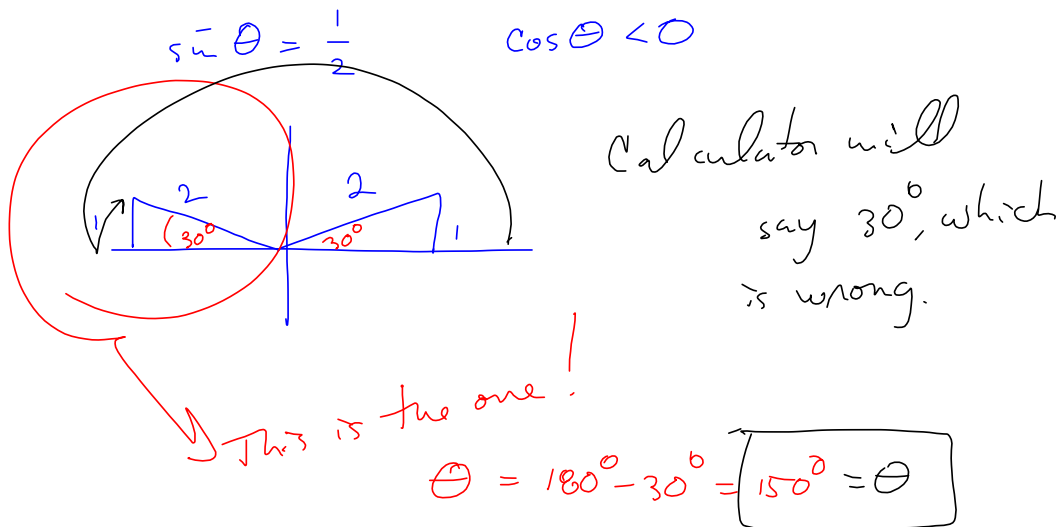 sin θ = 1/2
cos θ < 0
Calculator will
say 30°, which
is wrong.
2
2
1
30°
30°
1
This is the one!
θ = 180° - 30° = 150° = θ